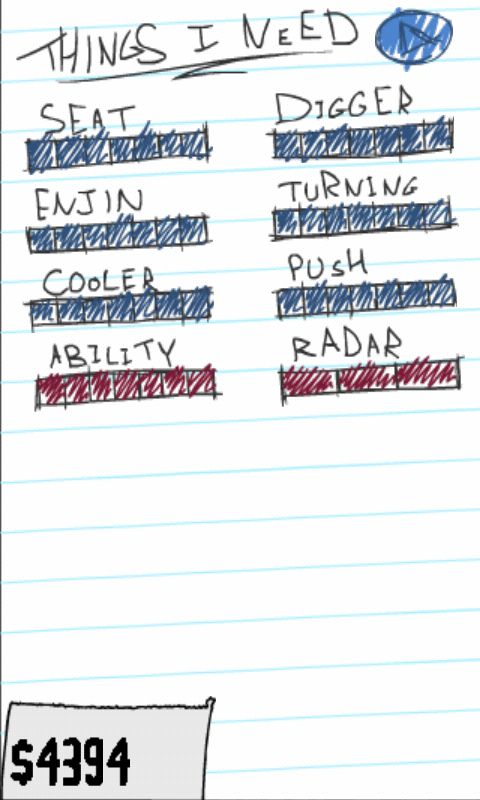 THINGS I NEED
SEAT
DIGGER
ENJIN
TURNING
COOLER
PUSH
ABILITY
RADAR
$4394